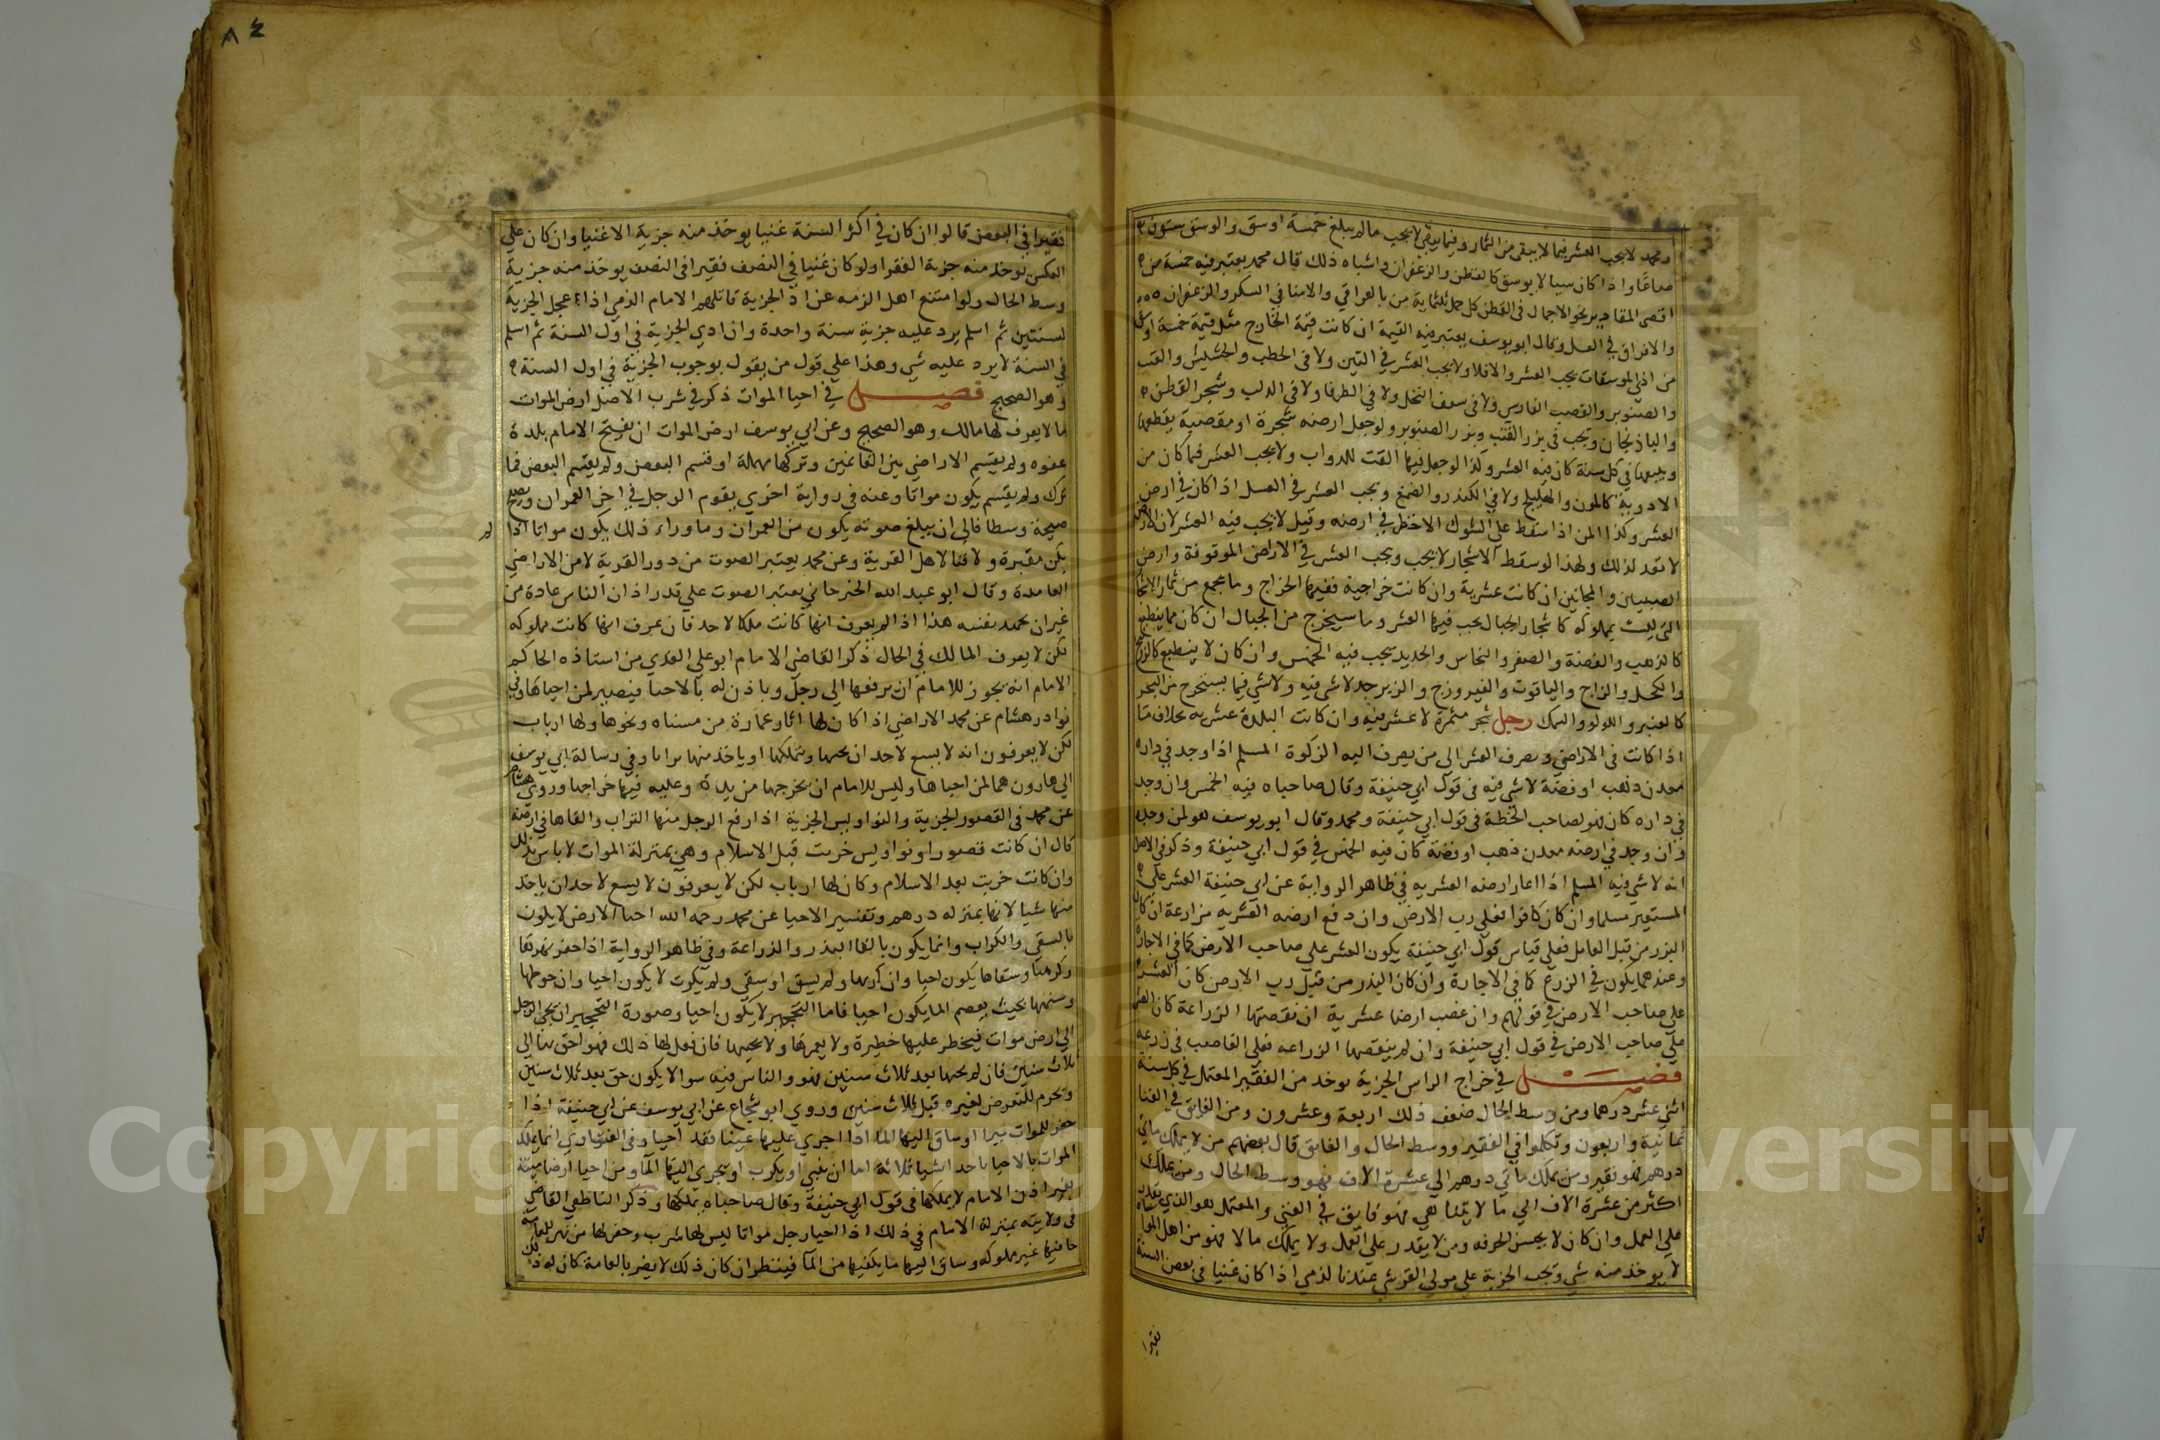 ومحمد لا يجب العشر فيما لا يبقى من الثمار وفيما يبقى لا يجب ما لم يبلغ خمسة اوسق والوسق ستون
صاعا واذا كان شيا لا يوسق كالقطن والزعفران واشباه ذلك قال محمد يعتبر فيه خمسة من
اقصى المقادير نحو الاحمال في القطن كل حمل ثلثماية من بالعراقي والامنا في السكر والزعفران
والافراق في العسل وقال ابو يوسف يعتبر فيه القيمة ان كانت قيمة الخارج مثل قيمة خمسة اوسق
من ادنى الموسقات يجب العشر والا فلا ولا يجب العشر في التبن ولا في الحطب والحشيش والقنب
والصنوبر والقصب الفارسي ولا في سعف النخل ولا في الطرفا ولا في الدلب وشجر القطن
والباذنجان ويجب في بزر القنب وبزر الصنوبر ولو جعل ارضه شجرة او مقصبة يقطعها
ويبيعها في كل سنة كان فيه العشر وكذا لو جعل فيها القت للدواب ولا يجب العشر فيما كان من
الادوية كالموز والهليلج ولا في الكندر والصمغ ويجب العشر في العسل اذا كان في ارض
العشر وكذا المن اذا سقط على الشوك الاخضر في ارضه وقيل لا يجب فيه العشر لان الارض
لا تعد لذلك ولهذا لو سقط الاشجار لا يجب ويجب العشر في الاراضي الموقوفة وارض
الصبيان والمجانين ان كانت عشرية وان كانت خراجية ففيها الخراج وما يجمع من ثمار الاشجار
التي ليست بمملوكه كاشجار الجبال يجب فيها العشر وما يستخرج من الجبال ان كان مما ينطبع
كالذهب والفضة والصفر والنحاس والحديد يجب فيه الخمس وان كان لا ينطبع كالزرنيخ
والكحل والزاج والياقوت والفيروزج والزبرجد لا شي فيه ولا شي فيما يستخرج من البحر
كالعنبر واللولو والسمك رجل شجر مثمرة لا عشر فيه وان كانت البلدة عشريه بخلاف ما
اذا كانت في الاراضي ويصرف العشر الى من يصرف اليه الزكوة المسلم اذا وجد في داره
معدن ذهب او فضة لا شي فيه في قول ابي حنيفة وقال صاحباه فيه الخمس وان وجد
في داره كان لصاحب الخطة في قول ابي حنيفة ومحمد وقال ابو يوسف هو لمن وجده
وان وجد في ارضه معدن ذهب او فضة كان فيه الخمس في قول ابي حنيفة وذكر في الاصل
انه لا شي فيه المسلم اذا اعار ارضه العشريه في ظاهر الرواية عن ابي حنيفة العشر على
المستعير مسلما وان كان كافرا فعلى رب الارض وان دفع ارضه العشريه مزارعة ان كان
البزر من قبل العامل فعلى قياس قول ابي حنيفة يكون العشر على صاحب الارض كما في الاجارة
وعندهما يكون في الزرع كما في الاجارة وان كان البذر من قبل رب الارض كان العشر
على صاحب الارض في قولهم وان غصب ارضا عشرية ان نقصتها الزراعة كان العشر
على صاحب الارض في قول ابي حنيفة وان لم ينقصها الزراعه فعلى الغاصب في زرعه
فصل في خراج الراس الجزية يوخد من الفقير المعتمل في كل سنة
اثني عشر درهما ومن وسط الحال ضعف ذلك اربعة وعشرون ومن الفايق في الغنا
ثمانية واربعون وتكلموا في الفقير ووسط الحال والفايق قال بعضهم من لا يملك مايتي
درهم فهو فقير ومن يملك مأتي درهم الى عشرة الاف فهو وسط الحال ومن يملك
اكثر من عشرة الاف الى ما لا يتناهى فهو فايق في الغنى والمعتمل هو الذي يقدر
على العمل وان كان لا يحسن الحرفه ومن لا يقدر على العمل ولا يملك مالا فهو من اهل
لا يوخذ منه شي وتجب الجزية على مولى القرشي عندنا لذمي اذا كان غنيا في بعض السنة
فقيرا
٨٤
فقيرا في البعض قالوا ان كان في اكثر السنة غنيا يوخذ منه جزية الاغنيا وان كان على
العكس يوخذ منه جزية الفقرا ولو كان غنيا في النصف فقيرا في النصف يوخذ منه جزية
وسط الحال ولو امتنع اهل الذمه عن ادا الجزية قاتلهم الامام الذمي اذا عجل الجزية
لسنتين ثم اسلم يرد عليه جزية سنة واحدة وان ادى الجزية في اول السنة ثم اسلم
في السنة لا يرد عليه شي وهذا على قول من يقول بوجوب الجزية في اول السنة
وهو الصحيح فصل في احيا الموات ذكر في شرب الاصل ارض الموات
ما لا يعرف لها مالك وهو الصحيح وعن ابي يوسف ارض الموات ان يفتح الامام بلدة
عنوه ولم يقسم الاراضي بين الغانمين وتركها مهملة او قسم البعض ولم يقسم البعض فما
ترك ولم يقسم يكون مواتا وعنه في رواية اخرى يقوم الرجل في اخر العمران ويصيح
صيحة وسطا فالى ان يبلغ صوته يكون من العمران وما وراء ذلك يكون مواتا اذا لم
يكن مقبرة ولا فنا لاهل القرية وعن محمد يعتبر الصوت من دور القرية لا من الاراضي
العامدة وقال ابو عبد الله الجرجاني يعتبر الصوت على قدر اذان الناس عادة من
غير ان يجهد نفسه هذا اذا لم يعرف انها كانت ملكا لاحد فان عرف انها كانت مملوكه
لكن لا يعرف المالك في الحال ذكر القاضي الامام ابو علي السغدي من استاذه الحاكم
الامام انه يجوز للامام ان يدفعها الى رجل وياذن له بالاحيا فيصير لمن احياها وفي
نوادر هشام عن محمد الاراضي اذا كان لها اثار عمارة من مسناه ونحوها ولها ارباب
لكن لا يعرفون انه لا يسع لاحد ان يحييها ويتملكها او ياخذ منها ترابا وفي رسالة ابي يوسف
الى هارون هما لمن احياها وليس للامام ان يخرجها من يده وعليه فيها خراجها وروى هشام
عن محمد في القصور الخربة والنواويس الخربة اذا رفع الرجل منها التراب والقاها في ارضه
قال ان كانت قصورا ونواويس خربت قبل الاسلام وهي بمنزلة الموات لا باس بذلك
وان كانت خربت بعد الاسلام وكان لها ارباب لكن لا يعرفون لا يسع لاحد ان ياخذ
منها شيا لانها بمنزله درهم وتفسير الاحيا عن محمد رحمه الله احيا الارض لا يكون
بالسقي والكراب وانما يكون بالقا البذر والزراعة وفي ظاهر الرواية اذا حفر نهرها
وكربها وسقاها يكون احيا وان كربها ولم يسق او سقى ولم يكرب لا يكون احيا وان حوطها
وسنمها بحيث يعصم الما يكون احيا فاما التحجير لا يكون احيا وصورة التحجير ان يجي الرجل
الى ارض موات فيحظر عليها حظيرة ولا يعمرها ولا يحييها فان فعل لها ذلك فهو احق بها الى
ثلاث سنين فان لم يحيها بعد ثلاث سنين فهو والناس فيه سوا لا يكون حق بعد ثلاث سنين
ويحرم للتعرض لغيره قبل ثلاث سنين وروى ابو شجاع عن ابي يوسف عن ابي حنيفة اذا
حفر للموات بيرا او ساق اليها الما اذا اجرى عليها عينا فقد احيا وفي الفتاوى انما يملك
الموات بالاحيا باحد اشيا ثلاثة اما ان يبني او يكرب او يجرى اليها الما ومن احيا ارضا ميتة
بغير اذن الامام لا يملكها في قول ابي حنيفة وقال صاحباه يملكها وذكر الناطفي القاضي
في ولايته بمنزلة الامام في ذلك اذا احيا رجل مواتا ليس لها شرب وحفر لها من نهر للعامة
حافتيها غير مملوكه وساق اليها ما يكفيها من الما فينظر ان كان ذلك لا يضر بالعامة كان له ذلك
Copyrig University